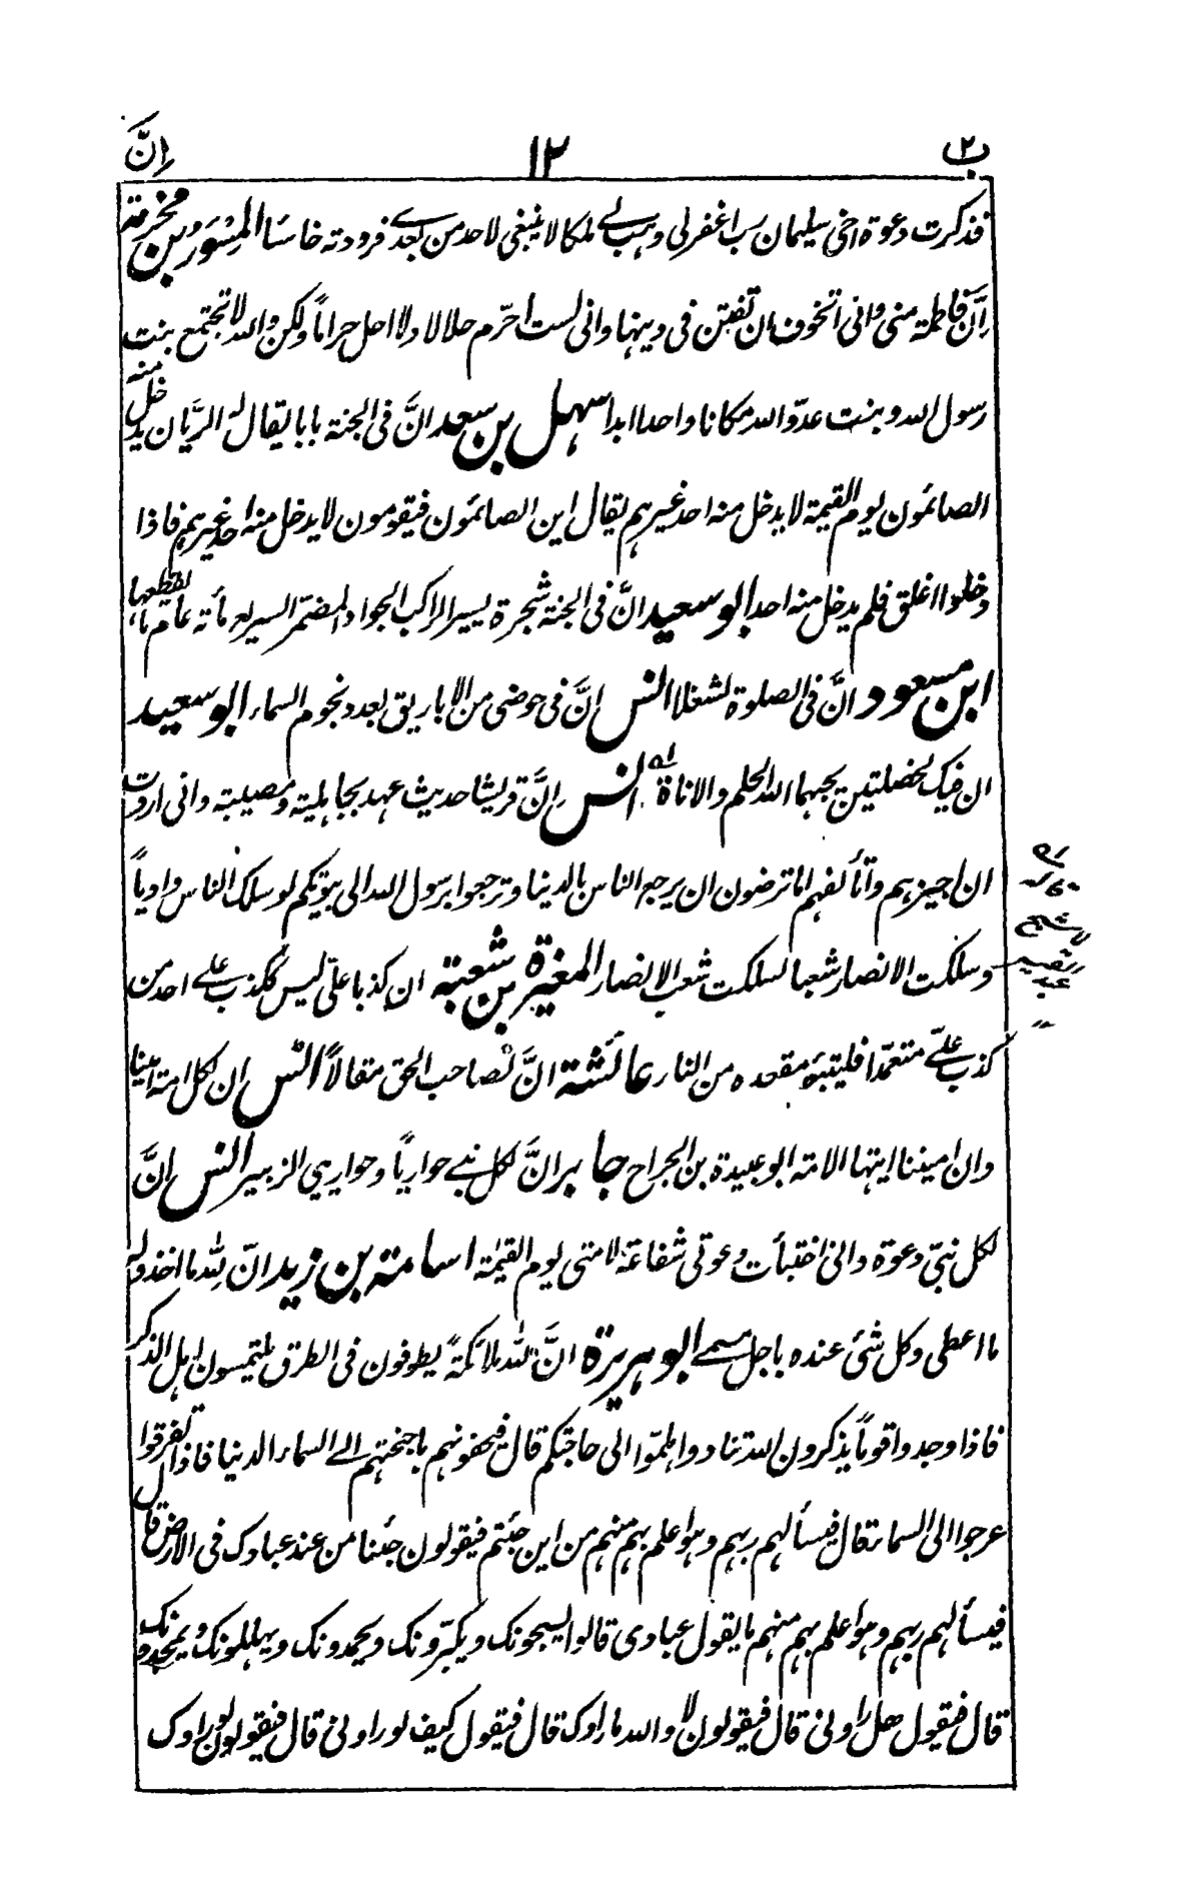 ب۲ ۱۲ اِنَّ
فذکرت دعوة اخی سلیمان رب اغفرلی وهب لے ملکا لا ینبغی لاحد من بعدے فرددته خاسئا المِسْوَر بن مخرمة
اِنَّ فاطمة منی وانی اتخوف ان تفتن فی دینها وانی لست احرّم حلالا ولا احل حراماً ولکن والله لا تجتمع بنت
رسول الله وبنت عدو الله مکانا واحدا ابدا سهل بن سعد انَّ فی الجنة بابا یقال له الریَّان یدخل منه
الصائمون یوم القیمة لا یدخل منه احد غیرهم یقال این الصائمون فیقومون لا یدخل منه احد غیرهم فاذا
دخلوا اغلق فلم یدخل منه احد ابو سعید انَّ فی الجنة شجرة یسیر الراکب الجواد المضمّر السریع مأته عام ما یقطعها
ابن مسعود انَّ فی الصلوة لشغلا انس اِنَّ فی حوضی من الاباریق بعدد نجوم السماء ابو سعید
ان فیک لخصلتین یحبهما الله الحلم والاناة انس اِنَّ قریشا حدیث عهد بجاهلیة ومصیبة وانی اردت
ان اجیزهم واتألفهم اما ترضون ان یرجع الناس بالدنیا وترجعوا برسول الله الی بیوتکم لو سلک الناس وادیاً
وسلکت الانصار شعبا لسلکت شعب الانصار المغیرة بن شعبة ان کذبا علیّ لیس ککذب علے احد من
کذب علیّ متعمّدا فلیتبوّء مقعده من النار عائشة انَّ لصاحب الحق مقالاً انس ان لکل امة امینا
وان امیننا ایتها الامة ابو عبیدة بن الجراح جابر انَّ لکل نبے حواریاً وحواریی الزبیر انس اِنَّ
لکل نبیّ دعوة وانی اختبأت دعوتی شفاعة لامتی یوم القیٰمة اسامة بن زید انّ لِلّٰه ما اخذ وله
ما اعطی وکل شئ عنده باجل مسمے ابو هریرة انَّ للّٰه ملائکةً یطوفون فی الطرق یلتمسون اهل الذکر
فاذا وجدوا قوماً یذکرون الله تنادوا هلمّوا الی حاجتکم قال فیحفونهم باجنحتهم الے السماء الدنیا فاذا تفرقوا
عرجوا الی السماء قال فیسألهم ربهم وهو اعلم بهم منهم من این جئتم فیقولون جئنا من عند عبادک فی الارض قال
فیسألهم ربهم وهو اعلم بهم منهم ما یقول عبادی قالوا یسبحونک ویکبّرونک ویحمدونک ویهللونک ویمجدونک
قال فیقول هل راونی قال فیقولون لا والله ما راوک قال فیقول کیف لو راونی قال فیقولون لو راوک